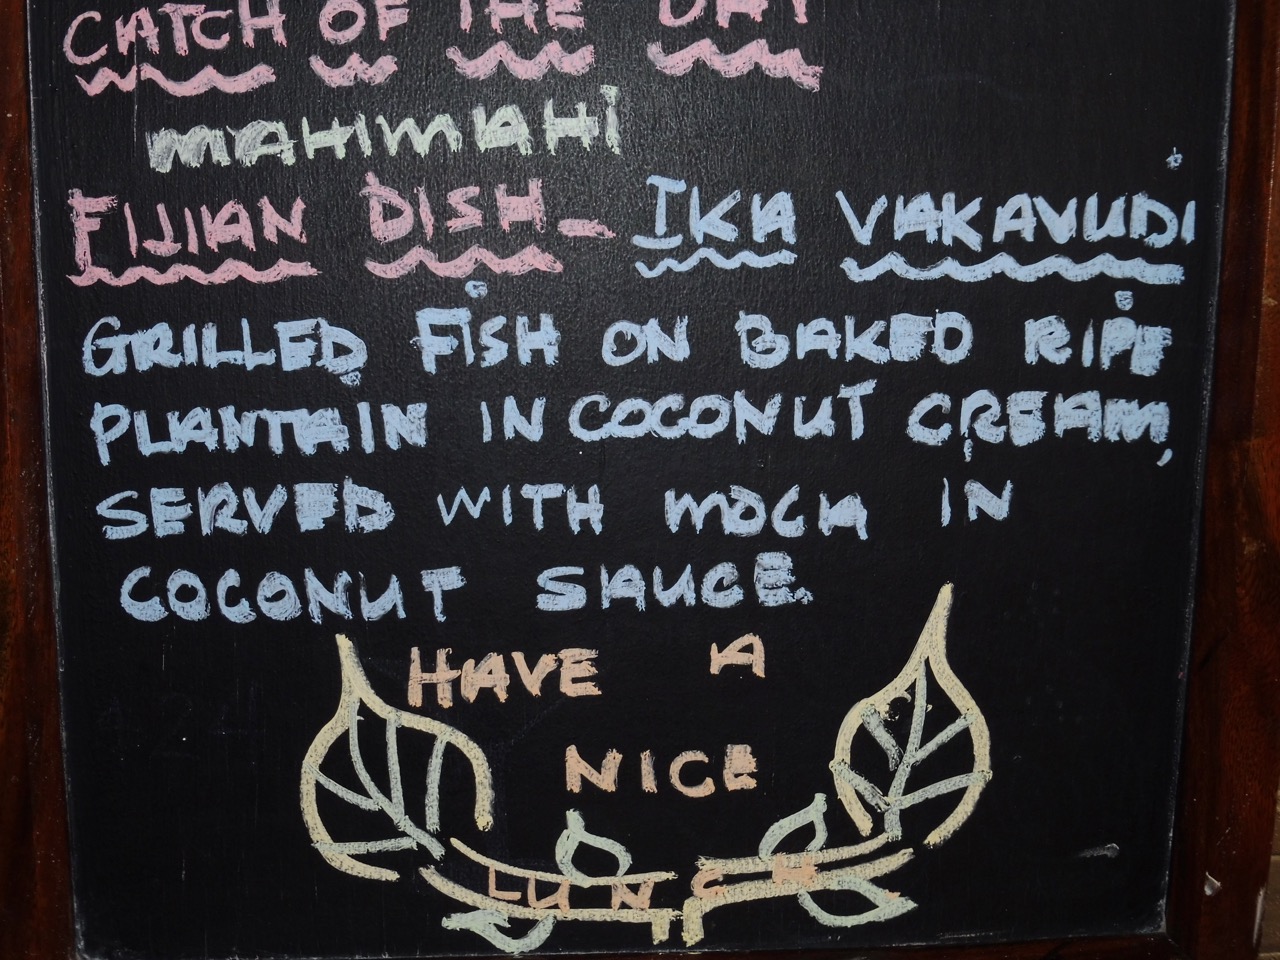 CATCH OF THE DAY
MAHIMAHI
FIJIAN DISH - IKA VAKAVUDI
GRILLED FISH ON BAKED RIPE
PLANTAIN IN COCONUT CREAM,
SERVED WITH MOCA IN
COCONUT SAUCE.
HAVE A
NICE
LUNCH